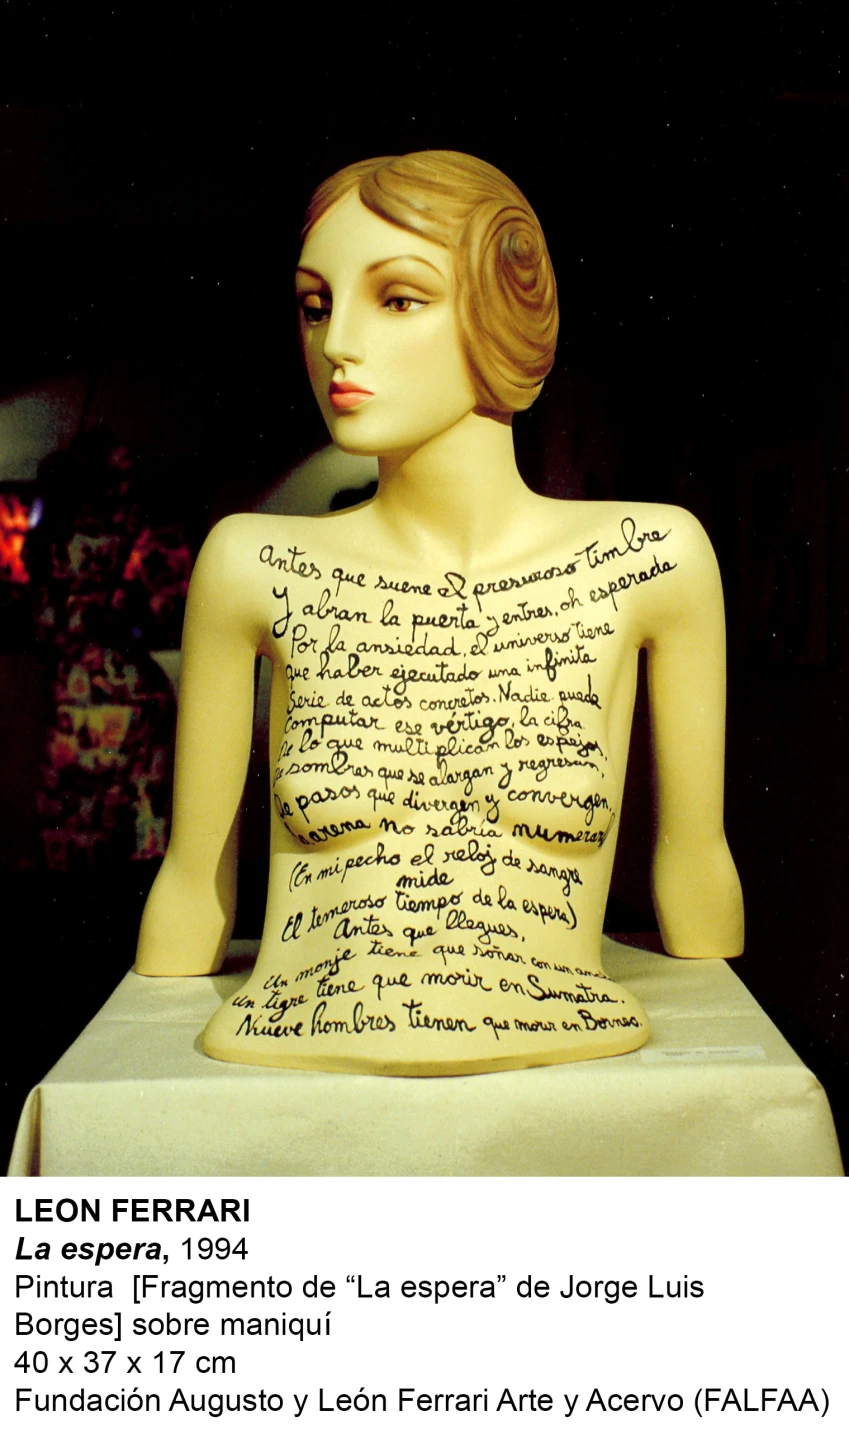 Antes que suene el presuroso timbre
Y abran la puerta y entres, oh esperada
Por la ansiedad, el universo tiene
que haber ejecutado una infinita
Serie de actos concretos. Nadie puede
Computar ese vértigo, la cifra
De lo que multiplican los espejos,
De sombras que se alargan y regresan,
De pasos que divergen y convergen.
La arena no sabría numerar
(En mi pecho el reloj de sangre
mide
El temeroso tiempo de la espera)
Antes que llegues,
Un monje tiene que soñar con un
un tigre tiene que morir en Sumatra.
Nueve hombres tienen que morir en Borneo.
LEON FERRARI
La espera, 1994
Pintura [Fragmento de “La espera” de Jorge Luis
Borges] sobre maniquí
40 x 37 x 17 cm
Fundación Augusto y León Ferrari Arte y Acervo (FALFAA)